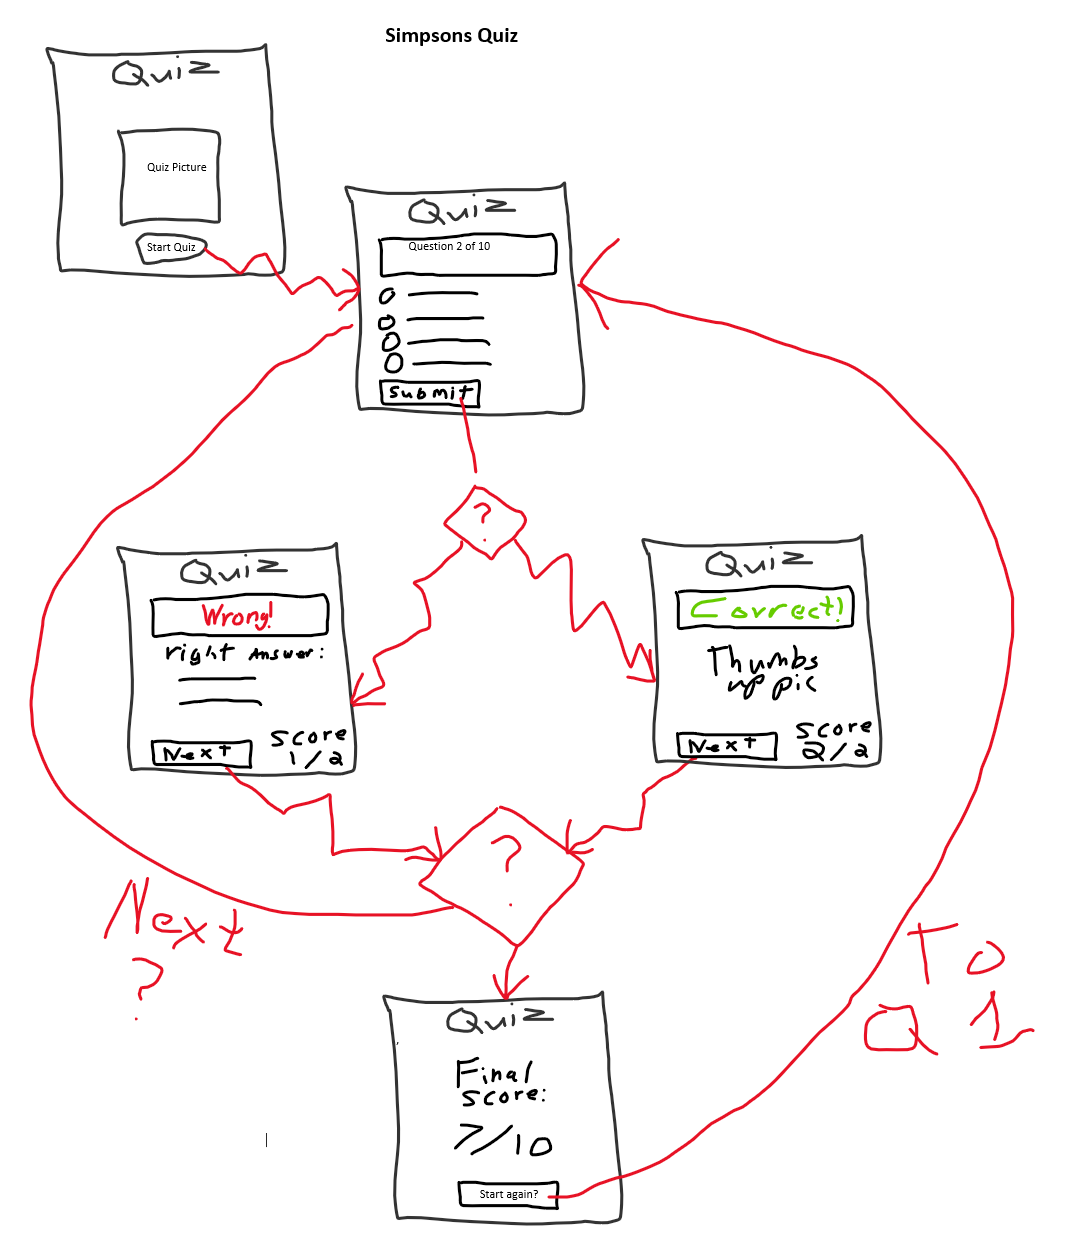 Simpsons Quiz
Quiz
Quiz Picture
Start Quiz
Quiz
Question 2 of 10
Submit
?
Quiz
Wrong!
right Answer:
Next
Score
1/2
Quiz
Correct!
Thumbs
up pic
Next
Score
2/2
?
Next
?
To
Q 1
Quiz
Final
score:
7/10
Start again?